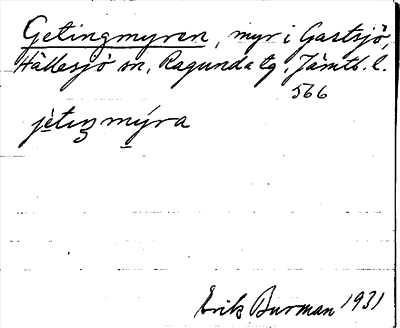 Getingmyren, myr i Gastsjö,
Hällesjö sn, Ragunda tg. Jämtl. l.
566
jètiŋmýra
Erik Burman 1931